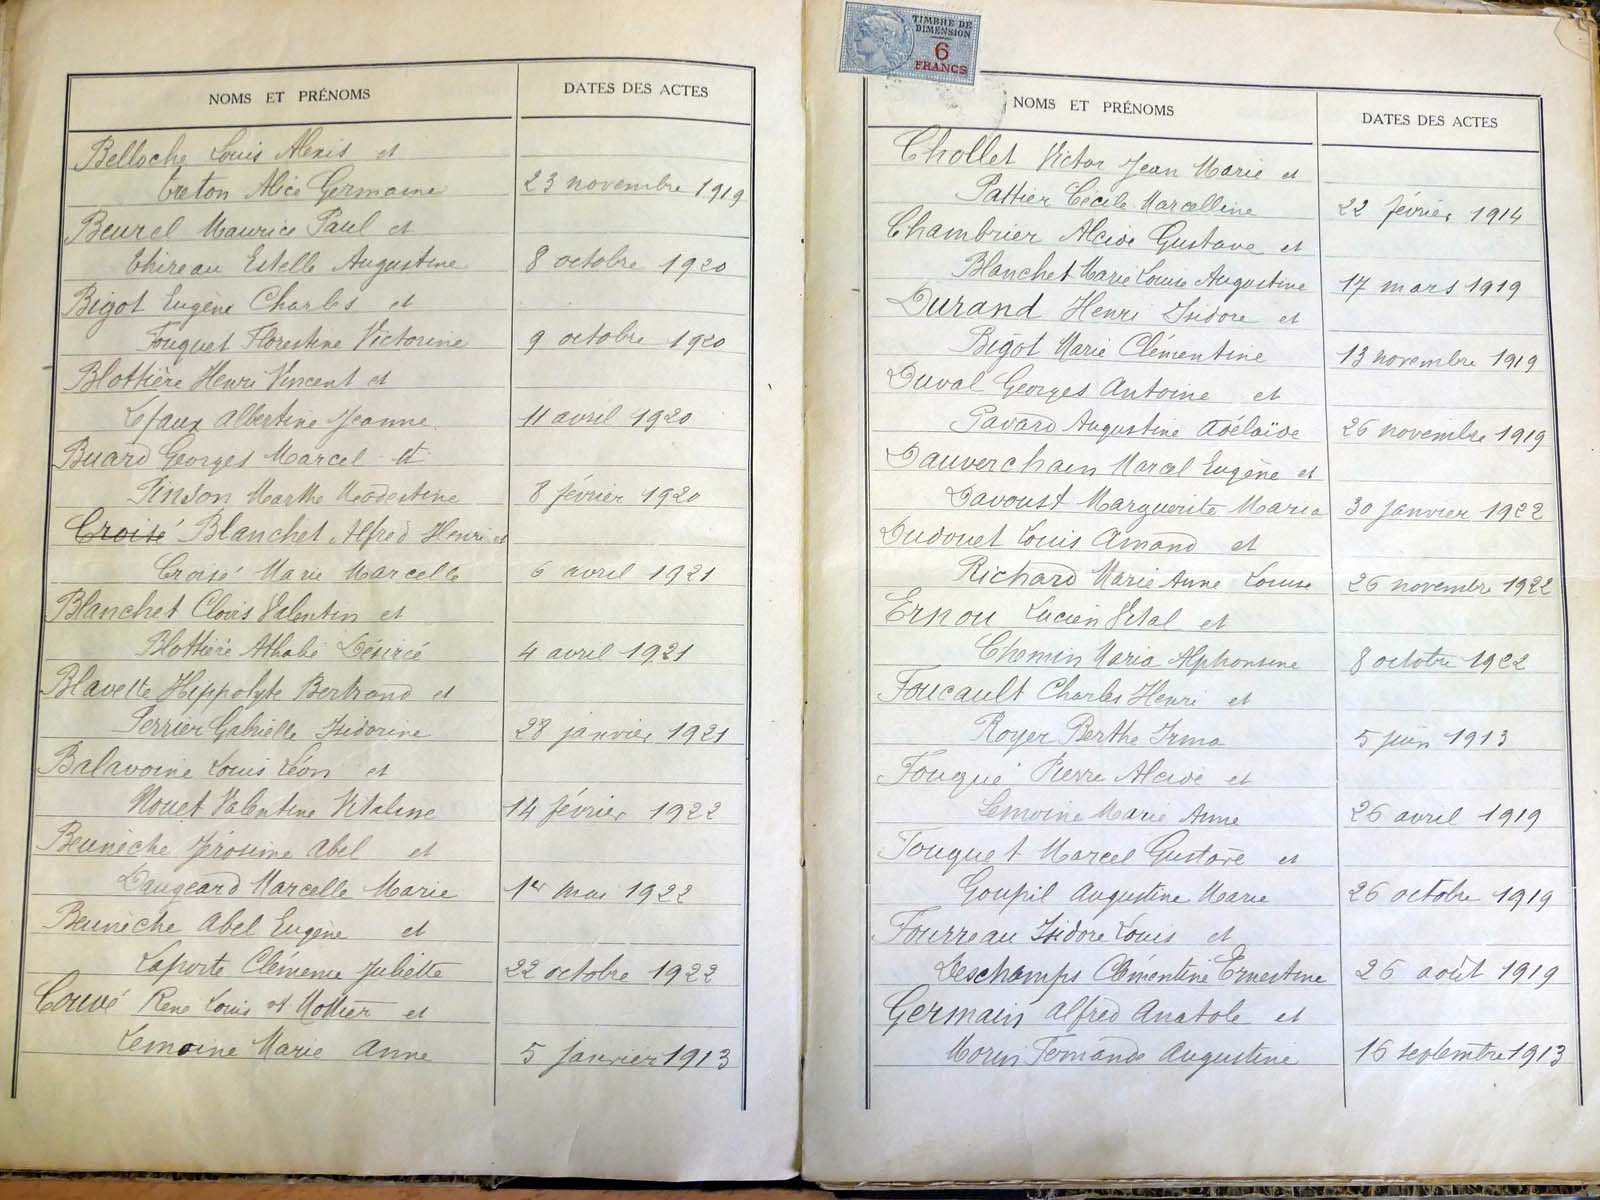 NOMS ET PRÉNOMS DATES DES ACTES
Belloche Louis Alexis et
Creton Alice Germaine 23 novembre 1919
Beurel Maurice Paul et
Thireau Estelle Augustine 8 octobre 1920
Bigot Eugène Charles et
Fouquet Florestine Victorine 9 octobre 1920
Blottière Henri Vincent et
Lefaux Albertine Jeanne 11 avril 1920
Buard Georges Marcel et
Pinson Marthe Modestine 8 février 1920
Croisé Blanchet Alfred Henri et
Croisé Marie Marcelle 6 avril 1921
Blanchet Clovis Valentin et
Blottière Désirée 4 avril 1921
Blavette Hippolyte Bertrand et
Perrier Gabrielle Isidorine 28 janvier 1921
Balavoine Louis Léon et
Nouet Valentine Vitaline 14 février 1922
Beunèche Jérosime Abel et
Daugeard Marcelle Marie 1er mai 1922
Beunèche Abel Eugène et
Laporte Clémence Juliette 22 octobre 1922
Couvé René Louis et
Lemoine Marie Anne 5 janvier 1913
TIMBRE DE
DIMENSION
6
FRANCS
NOMS ET PRÉNOMS DATES DES ACTES
Chollet Victor Jean Marie et
Pattier Cécile Marcelline 22 février 1914
Chambrier Alcide Gustave et
Blanchet Marie Louise Augustine 17 mars 1919
Durand Henri Isidore et
Bigot Marie Clémentine 13 novembre 1919
Duval Georges Antoine et
Pavard Augustine Adélaïde 26 novembre 1919
Dauverchain Marcel Eugène et
Davoust Marguerite Maria 30 janvier 1922
Dudouet Louis Amand et
Richard Marie Anne Louise 26 novembre 1922
Ernou Lucien Vital et
Chemin Maria Alphonsine 8 octobre 1922
Foucault Charles Henri et
Royer Berthe Irma 5 juin 1913
Fouqué Pierre Alcide et
Lemoine Marie Anne 26 avril 1919
Fouquet Marcel Gustave et
Goupil Augustine Marie 26 octobre 1919
Fourreau Isidore Louis et
Deschamps Clémentine Ernestine 26 août 1919
Germain Alfred Anatole et
Morin Fernande Augustine 16 septembre 1913